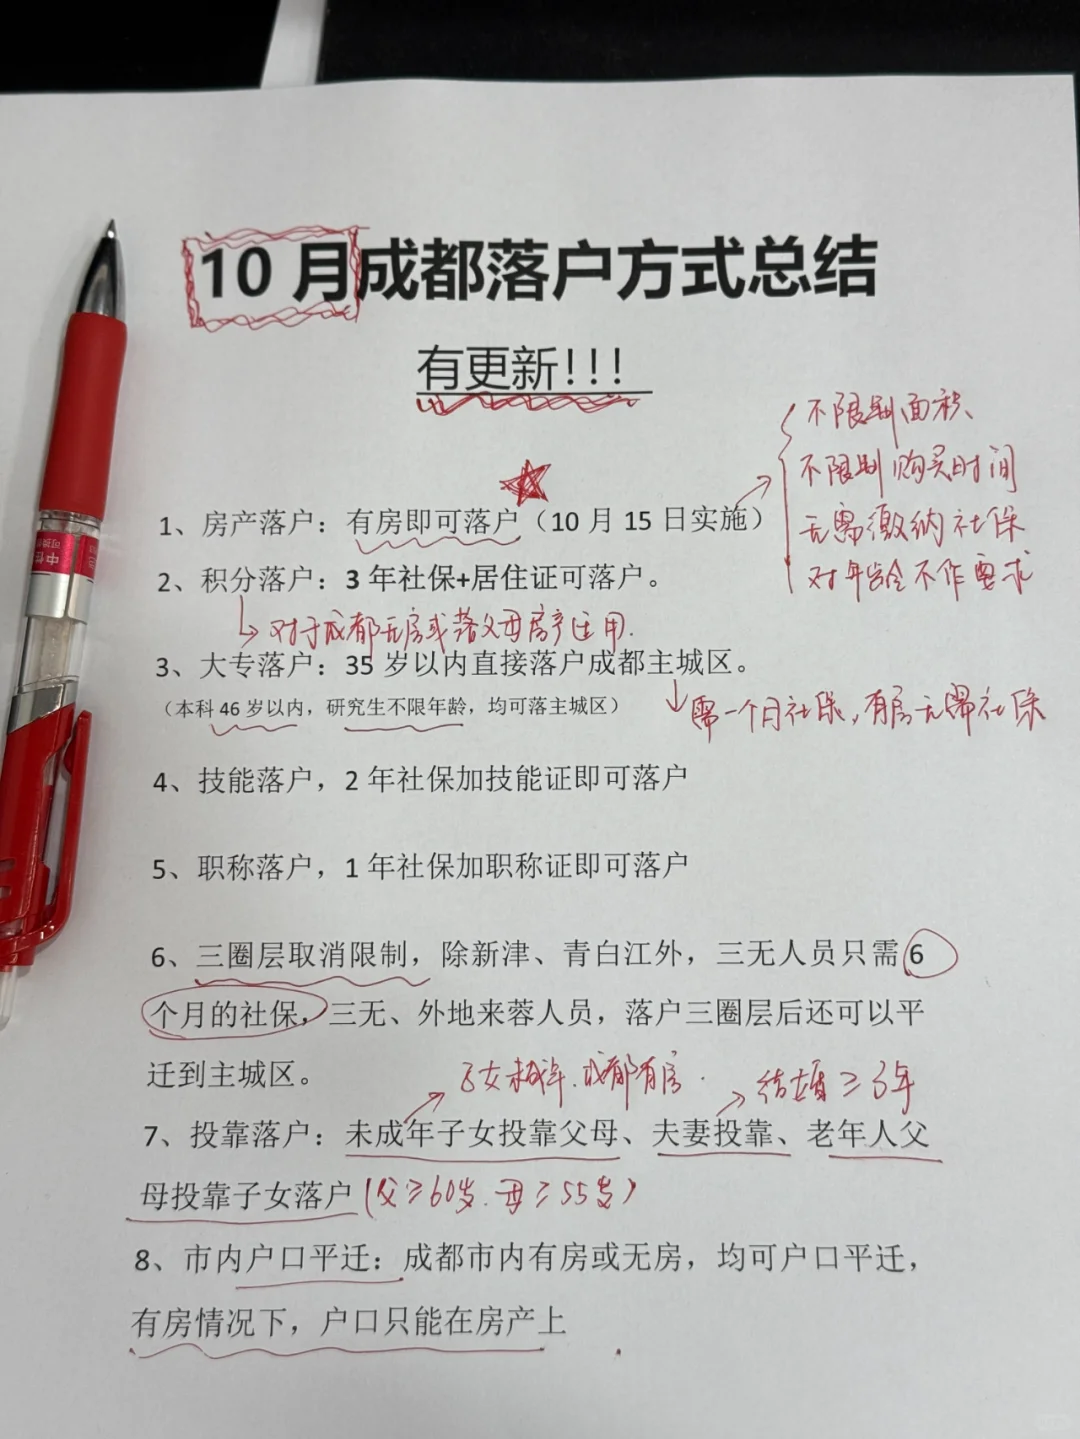 10月成都落户方式总结
有更新!!!
不限制面积、
不限制购买时间
1、房产落户：有房即可落户（10月15日实施）
无需缴纳社保
对年龄不作要求
2、积分落户：3年社保+居住证可落户。
对于成都无房或落父母房产适用.
3、大专落户：35岁以内直接落户成都主城区。
（本科46岁以内，研究生不限年龄，均可落主城区）
需一个月社保，有房无需社保
4、技能落户，2年社保加技能证即可落户
5、职称落户，1年社保加职称证即可落户
6、三圈层取消限制，除新津、青白江外，三无人员只需6
个月的社保，三无、外地来蓉人员，落户三圈层后还可以平
迁到主城区。
子女未成年.成都有房.
结婚≥3年
7、投靠落户：未成年子女投靠父母、夫妻投靠、老年人父
母投靠子女落户（父≥60岁.母≥55岁）
8、市内户口平迁：成都市内有房或无房，均可户口平迁，
有房情况下，户口只能在房产上